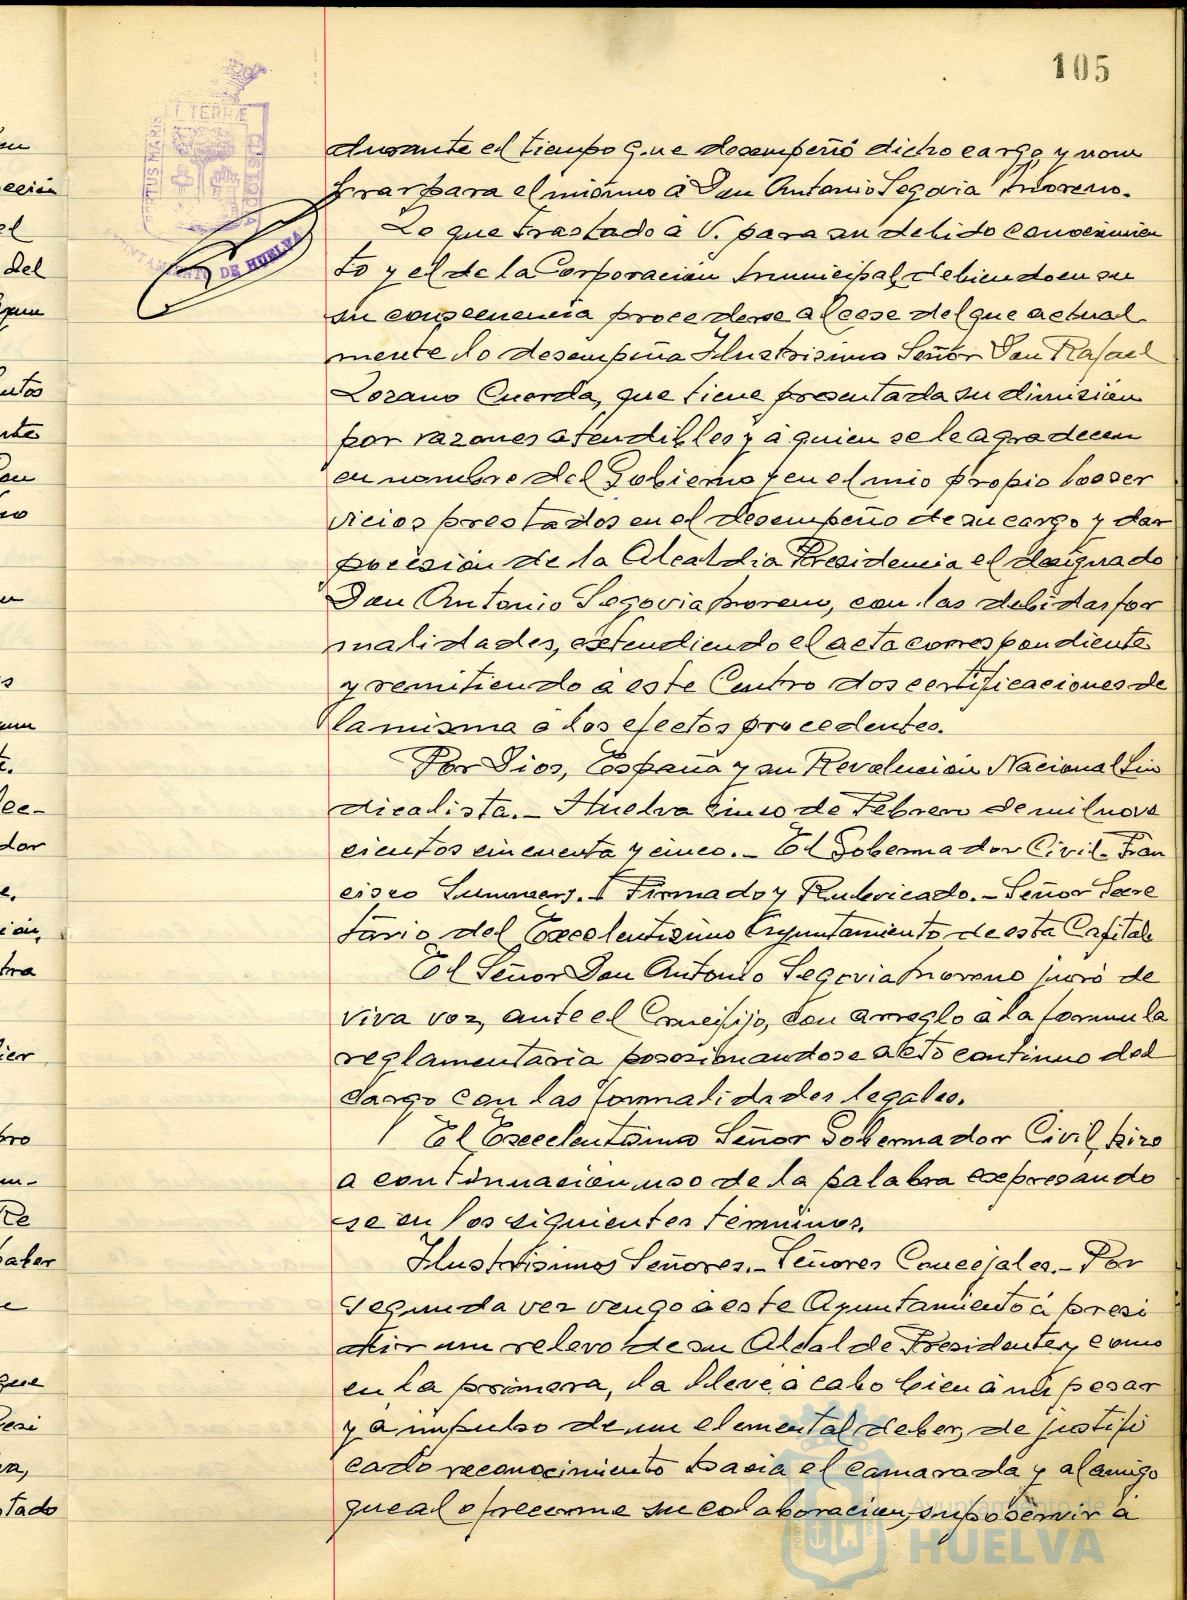 105
durante el tiempo que desempeñó dicho cargo, y nom
brar para el mismo á Don Antonio Segovia Moreno.
Lo que traslado á V. para su debido conocimien
to y el de la Corporación Municipal, debiendo en su
su consecuencia procederse al cese del que actual
mente lo desempeña Ilustrisimo Señor Don Rafael
Lozano Cuerda, que tiene presentada su dimisión
por razones atendibles y á quien se le agradecen
en nombre del Gobierno y en el mio propio los ser
vicios prestados en el desempeño de su cargo y dar
posesión de la Alcaldia Presidencia el designado
Don Antonio Segovia Moreno, con las debidas for
malidades, extendiendo el acta correspondiente
y remitiendo á este Centro dos certificaciones de
la misma a los efectos procedentes.
Por Dios, España y su Revolución Nacional Sin
dicalista.- Huelva cinco de Febrero de mil nove
cientos cincuenta y cinco.- El Gobernador Civil.- Fran
cisco Summers.- Firmado y Rubricado.- Señor Secre
tario del Excelentisimo Ayuntamiento de esta Capital.
El Señor Don Antonio Segovia Moreno juró de
viva voz, ante el Crucifijo, con arreglo á la formula
reglamentaria posesionandose acto continuo del
cargo con las formalidades legales.
El Excelentisimo Señor Gobernador Civil, hizo
a continuación uso de la palabra expresando
se en los siguientes términos.
Ilustrisimos Señores.- Señores Concejales.- Por
segunda vez vengo á este Ayuntamiento á presi
dir un relevo de su Alcalde Presidente y, como
en la primera, la llevé a cabo bien á mi pesar
y á impulso de un elemental deber, de justifi
cado reconocimiento hacia el camarada y al amigo
que al ofrecerme su colaboracion, supo servir á
ET TERRÆ
AYUNTAMIENTO DE HUELVA
Ayuntamiento de
HUELVA